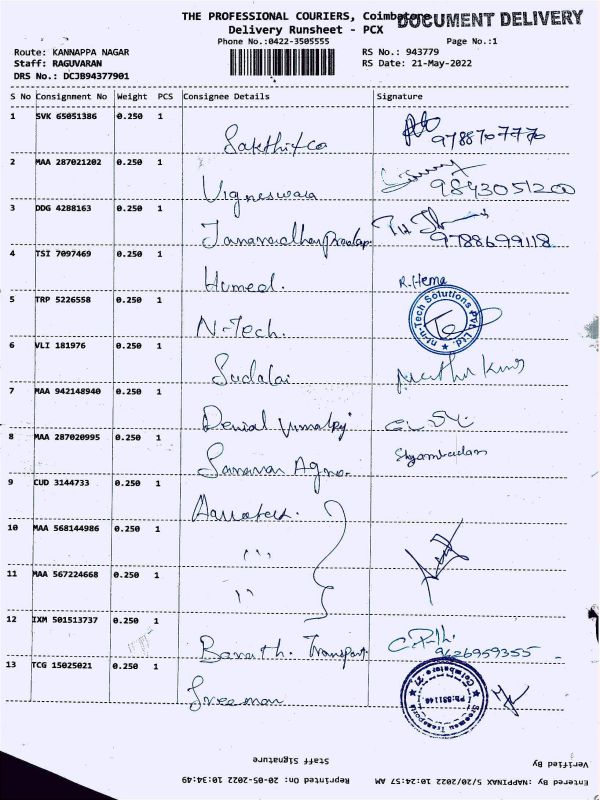 THE PROFESSIONAL COURIERS, Coimbatore
DOCUMENT DELIVERY
Delivery Runsheet - PCX
Phone No.:0422-3505555
Page No.:1
Route: KANNAPPA NAGAR
RS No.: 943779
Staff: RAGUVARAN
RS Date: 21-May-2022
DRS No.: DCJB94377901
S No Consignment No Weight PCS Consignee Details Signature
1 SVK 65051386 0.250 1
Sakthi & co 9788707770
2 MAA 287021202 0.250 1
Vigneswara 9843051200
3 DDG 4288163 0.250 1
9788699118
4 TSI 7097469 0.250 1
Humed. R.Hema
5 TRP 5226558 0.250 1
N-Tech. n-Tech Solutions Pvt. Ltd.
6 VLI 181976 0.250 1
Sudalai Muthu Kumar
7 MAA 942148940 0.250 1
Denial
8 MAA 287020995 0.250 1
Saravana Agro.
9 CUD 3144733 0.250 1
10 MAA 568144986 0.250 1
,,,
11 MAA 567224668 0.250 1
,,
12 IXM 501513737 0.250 1
Barath. Transport. 9626959355
13 TCG 15025021 0.250 1
Sreeman Sreeman Transports Coimbatore-27 Ph:881140
Staff Signature
Verified By
Reprinted On: 20-05-2022 10:34:49
Entered By :NAPPINAX 5/20/2022 10:24:57 AM